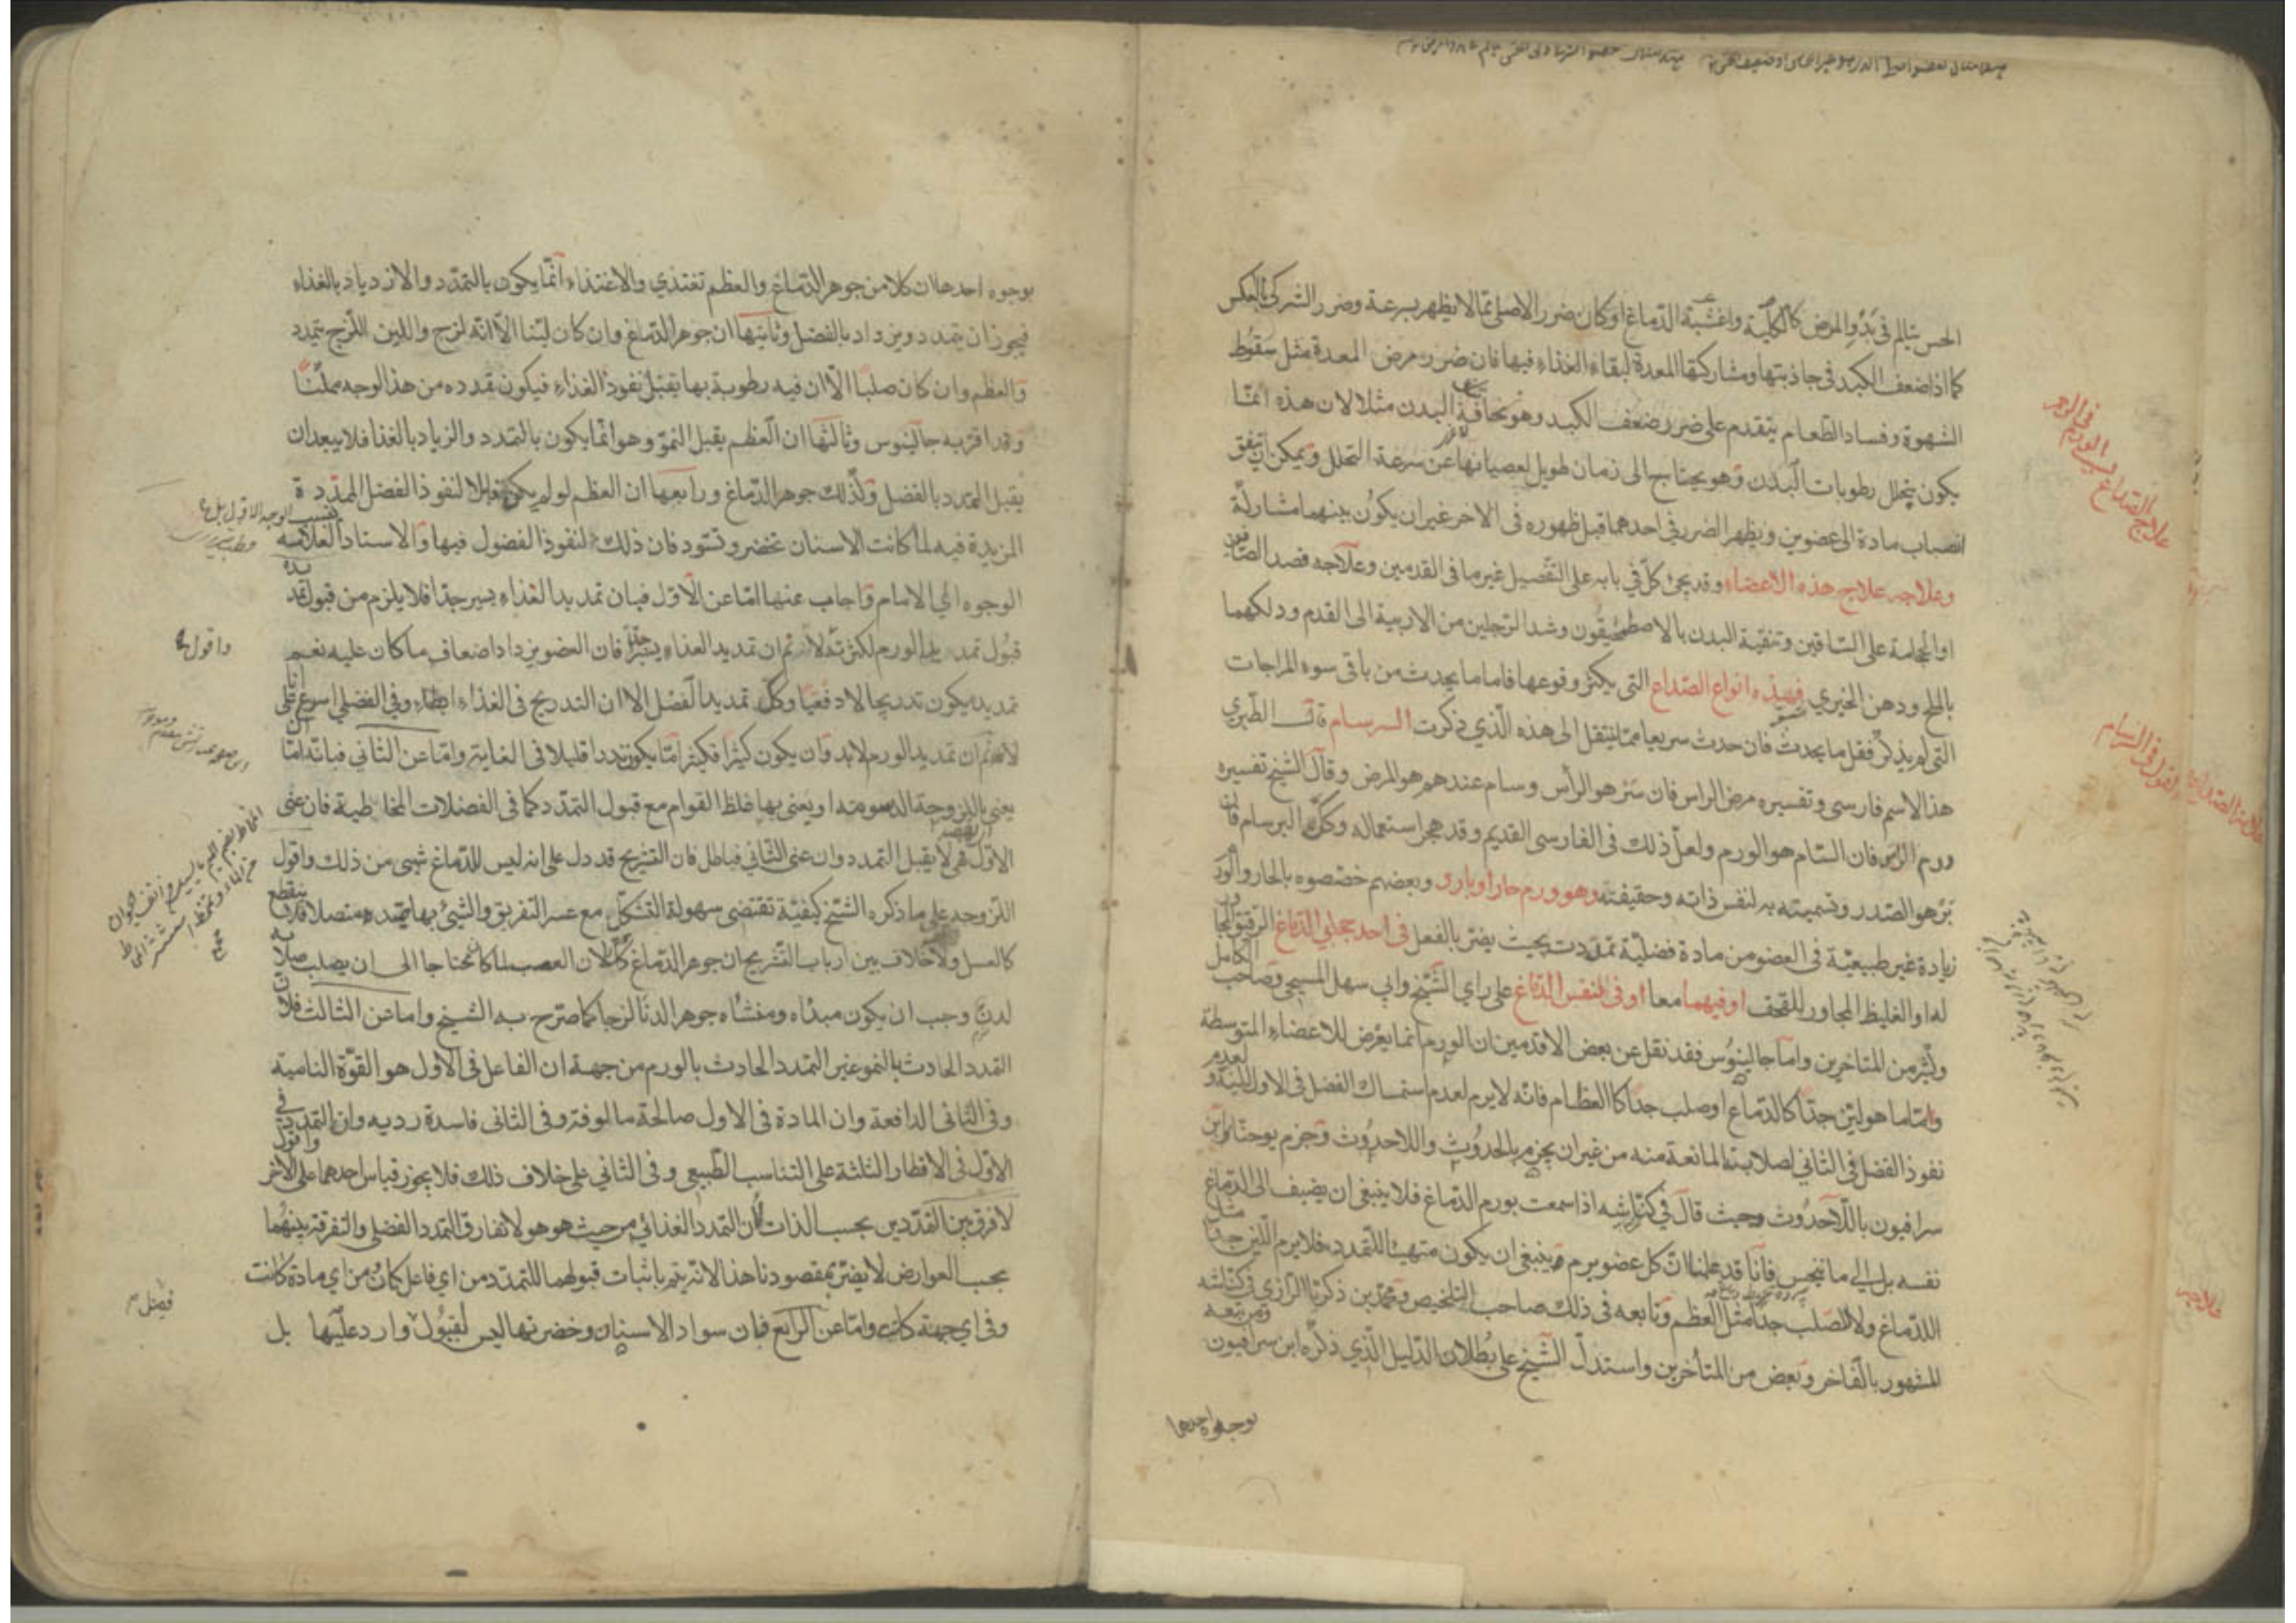 الحس يتالم في بدو المرض كالكلية واغشية الدماغ او كان ضرر الاصلي مما لا يظهر بسرعة وضرر الشركي بالعكس
كما اذا ضعف الكبد في جاذبتها ومشاركتها المعدة لبقاء الغذاء فيها فان ضرر مرض المعدة مثل سقوط
الشهوة وفساد الطعام يتقدم على ضرر ضعف الكبد وهو نحافة البدن مثلا لان هذه انما
يكون بتحلل رطوبات البدن وهو يحتاج الى زمان طويل لعصيانها عن سرعة التحلل ويمكن ان يتفق
انصباب مادة الى عضوين ويظهر الضرر في احدهما قبل ظهوره في الاخر غير ان يكون بينهما مشاركة
وعلاجه علاج هذه الاعضاء وقد يجئ كل في بابه على التفصيل غير ما في القدمين وعلاجه فصد الصافن
او الحجامة على الساقين وتنقية البدن بالاصطمحيقون وشد الرجلين من الاربية الى القدم ودلكهما
بالملح ودهن الخيري فهذه انواع الصداع التي يكثر وقوعها فاما ما يحدث من باقي سوء المزاجات
التي لم يذكر فقل ما يحدث فان حدث سريعا مما ينتقل الى هذه الذي ذكرت السرسام قال الطبري
هذا الاسم فارسي وتفسيره مرض الراس فان سر هو الرأس وسام عندهم هو المرض وقال الشيخ تفسيره
ورم الراس فان السام هو الورم ولعل ذلك في الفارسي القديم وقد هجر استعماله وكذا البرسام فان
بر هو الصدر وتسميته به لنفس ذاته وحقيقته وهو ورم حار او بارد وبعضهم خصصوه بالحار والورم
زيادة غير طبيعية في العضو من مادة فضلية تمددت بحيث يضر بالفعل في احد حجابي الدماغ الرقيق المجاور
له او الغليظ المجاور للقحف او فيهما معا او في نفس الدماغ على راي الشيخ وابي سهل المسيحي وصاحب الكامل
وكثير من المتاخرين واما جالينوس فقد نقل عن بعض الاقدمين ان الورم انما يعرض للاعضاء المتوسطة
واما ما هو لين جدا كالدماغ او صلب جدا كالعظام فانه لا يرم لعدم استمساك الفضل في الاول للينه ولعدم
نفوذ الفضل في الثاني لصلابته المانعة منه من غير ان يجزم بالحدوث واللاحدوث وجزم يوحنا بن
سرافيون باللاحدوث وحيث قال في كناشه اذا سمعت بورم الدماغ فلا ينبغي ان يضيف الى الدماغ
نفسه بل الى مانيجس فانا قد علمنا ان كل عضو يرم وينبغي ان يكون متهيئا للتمدد فلا يرم اللين جدا مثل
الدماغ ولا الصلب جدا مثل العظم وتابعه في ذلك صاحب التلخيص ومحمد بن ذكريا الرازي في كناشه
المشهور بالفاخر وبعض من المتأخرين واستدل الشيخ على بطلان الدليل الذي ذكره ابن سرافيون ومن تبعه
بوجوه احدها
علاج الصداع بسبب الورم في الرحم
القول في السرسام
بوجوه احدها ان كلا من جوهر الدماغ والعظم تغتذي والاغتذاء انما يكون بالتمدد والازدياد بالغذاء
فيجوز ان يتمدد ويزداد بالفضل وثانيها ان جوهر الدماغ وان كان لينا الا انه لزج واللين اللزج يتمدد
والعظم وان كان صلبا الا ان فيه رطوبة بها يقبل نفوذ الغذاء فيكون تمدده من هذا الوجه ممكنا
وقد اقر به جالينوس وثالثها ان العظم يقبل النمو وهو انما يكون بالتمدد والزياد بالغذا فلا يبعد ان
يقبل التمدد بالفضل وكذلك جوهر الدماغ ورابعها ان العظم لو لم يكن قابلا لنفوذ الفضل الممددة
المزيدة فيه لما كانت الاسنان تخضر وتسود فان ذلك لنفوذ الفضول فيها والاستاد العلامه
الوجوه الامام واجاب عنها اما عن الاول فبان تمديد الغذاء يسير جدا فلا يلزم من قبول تمديده
قبول تمديد الورم لكثرته لا ثم ان تمديد الغذاء يسير جدا فان العضو يزداد اضعاف ما كان عليه نعم
تمديده يكون تدريجا لا دفعيا وكل تمديد الفضل الا ان التدريج في الغذاء ابطاء وفي الفضلي اسرع
لا ثم ان تمديد الورم لابد وان يكون كثيرا فكثيرا ما يكون تمددا قليلا في الغاية واما عن الثاني فبانه اما
يعني باللزوجة الدسومة او يعنى بها غلظ القوام مع قبول التمدد كما في الفضلات المخاطية فان عنى
الاول فهي لا يقبل التمدد وان عنى الثاني فباطل فان التشريح قد دل على انه ليس للدماغ شيئ من ذلك واقول
اللزوجة على ما ذكره الشيخ كيفية تقتضى سهولة التشكل مع عسر التفريق والشيئ بها يمتد متصلا
كالعسل ولا خلاف بين ارباب التشريح ان جوهر الدماغ كذلك لان العصب لما كان محتاجا الى ان يصلب
لدن وجب ان يكون مبداه ومنشاه جوهر الدنا لزجا كما صرح به الشيخ واما عن الثالث فلان
التمدد الحادث بالنمو غير التمدد الحادث بالورم من جهة ان الفاعل في الاول هو القوة النامية
وفي الثاني الدافعة وان المادة في الاول صالحة مالوفة وفي الثاني فاسدة رديه وان التمدد في
الاول في الاقطار الثلثة على التناسب الطبيعي وفي الثاني على خلاف ذلك فلا يجوز قياس احدهما على الاخر واقول
لا فرق بين التمددين بحسب الذات لان التمدد الغذائي من حيث هو هو لا تفارق التمدد الفضلي والتفرقة بينهما
بحسب العوارض لا يضر بمقصودنا هذا لانه يتم باثبات قبولهما للتمدد من اي فاعل كان من اي مادة كانت
وفي اي جهة كان واما عن الرابع فبان سواد الاسنان وخضرتها ليس لقبول وارد عليها بل
واقول